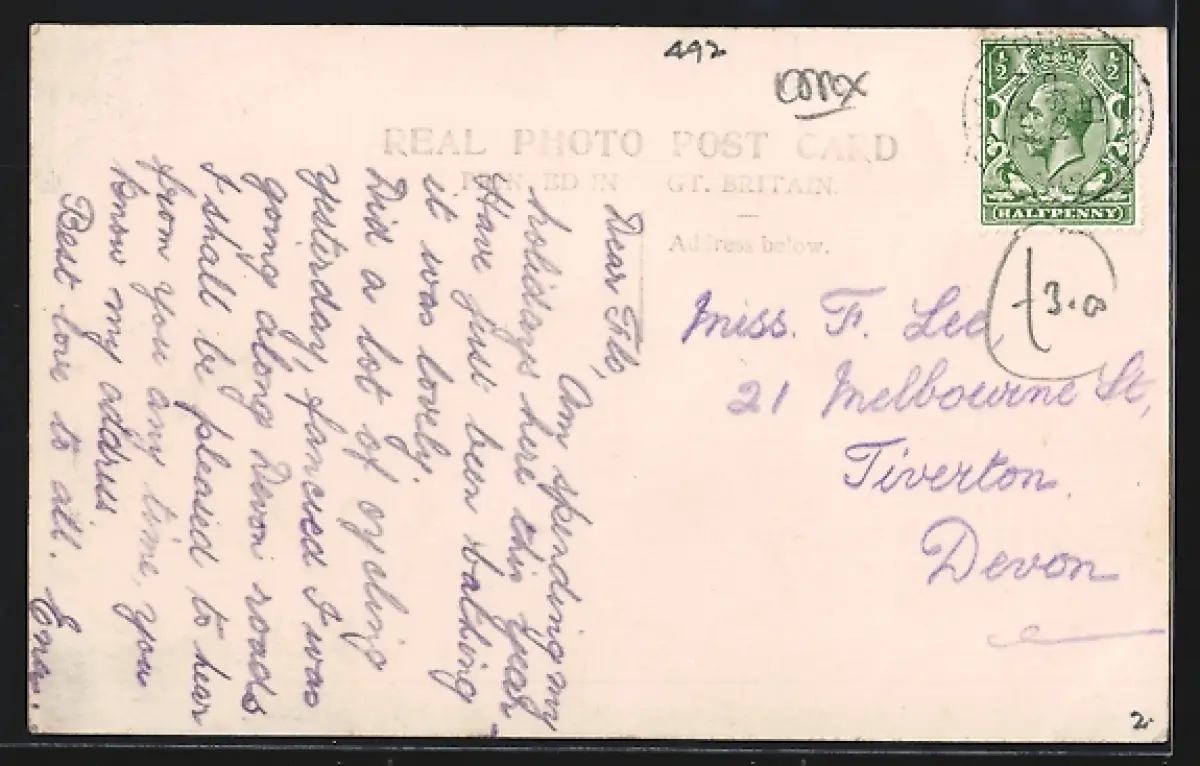 492
REAL PHOTO POST CARD
PRINTED IN GT. BRITAIN.
Address below.
1/2 1/2
HALFPENNY
3.00
Miss. F. Lee,
21 Melbourne St,
Tiverton,
Devon
Dear Flo,
Am spending my
holidays here this year -
Have just been bathing
it was lovely.
Did a lot of cycling
yesterday, fancied I was
going along Devon roads.
I shall be pleased to hear
from you any time, you
know my address
Best love to all. Ena.
2.